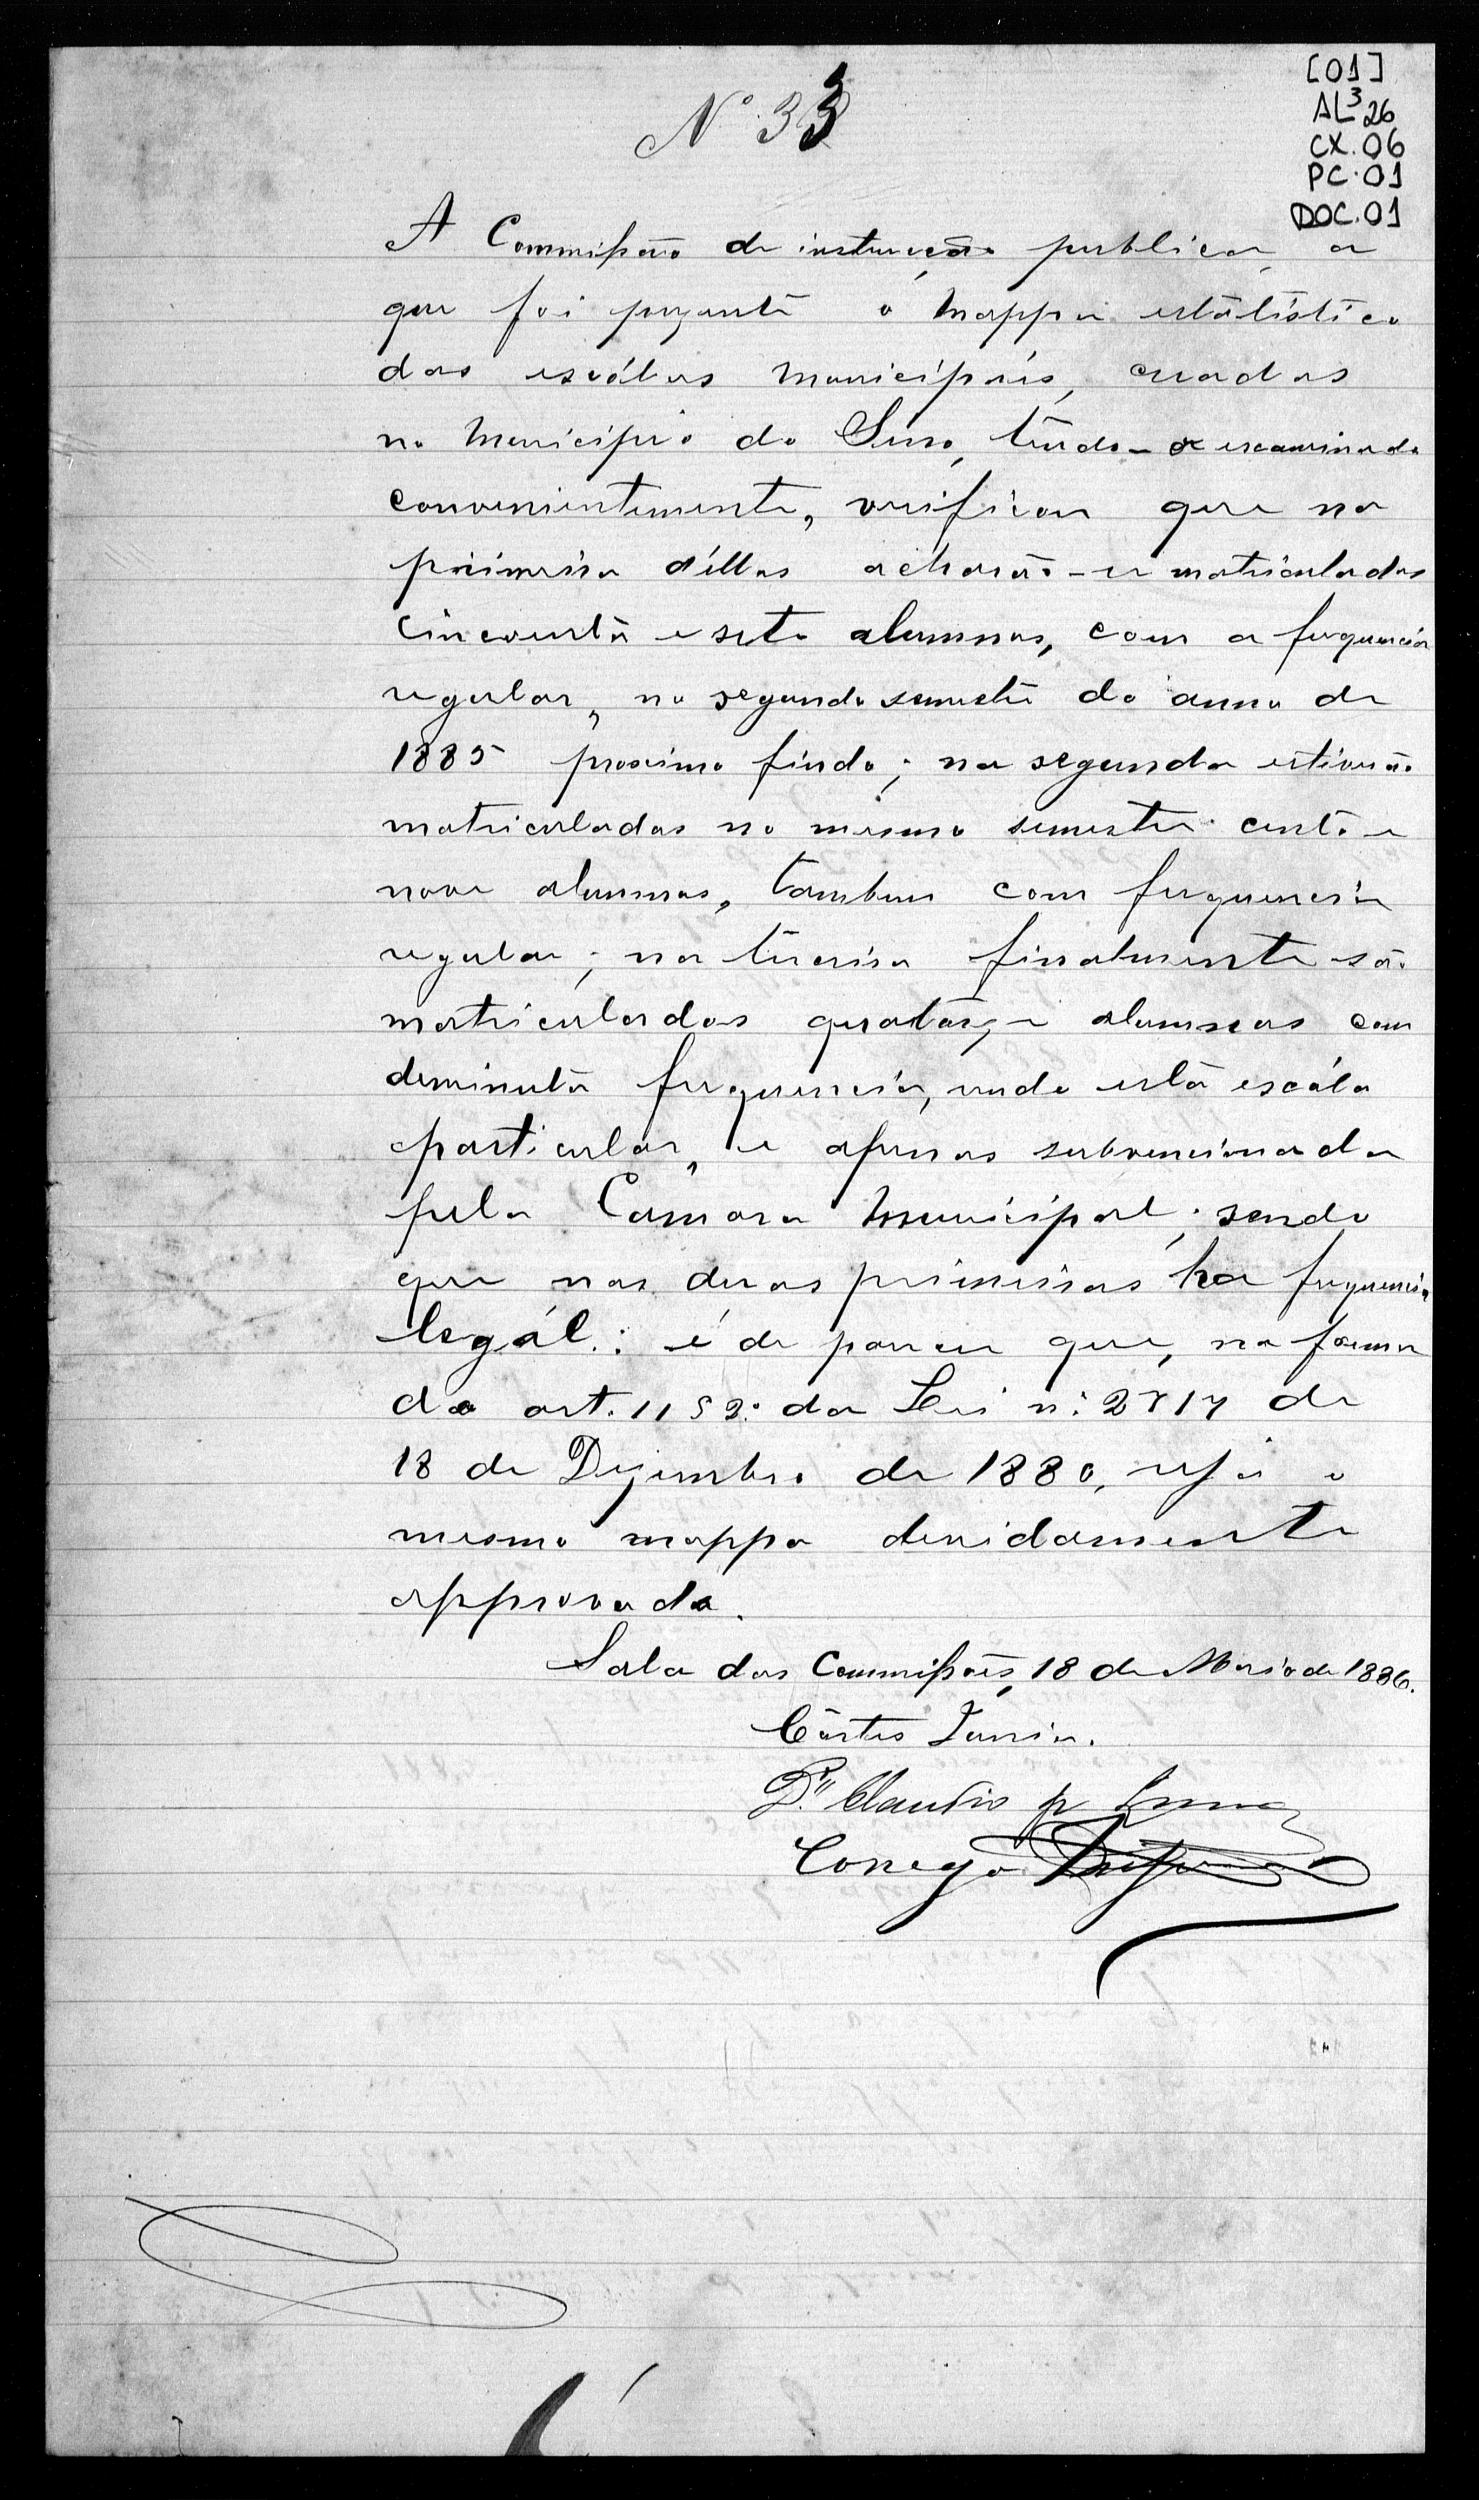 [01]
AL³ 26
CX. 06
PC. 01
DOC. 01
Nº 33
A Commissão de instrucção publica, a
que foi presente o mappa estatistico
das escólas municipáis, creadas
no Municipio do Serro, tendo-o examinado
convenientemente, verificou que na
primeira d'éllas acharão-se matriculadas
cincoenta e sete alumnas, com a frequencia
regular, no segundo semestre do anno de
1885 proximo findo; na segunda estiverão
matriculadas no mesmo semestre cento e
nove alumnas, tambem com frequencia
regular; na terceira finalmente são
matriculadas quatorze alumnas com
deminuta frequencia, sendo esta escóla
particular, e apenas subvencionada
pela Camara Municipal; sendo
que nas duas primeiras ha frequencia
legál.: é de parecer que, na forma
do art. 11 § 2º da Lei nº 2717 de
18 de Dezembro de 1880, seja o
mesmo mappa devidamente
approvado.
Sala das Commissões, 18 de Maio de 1886.
Côrtes Junior.
Claudio
Conego